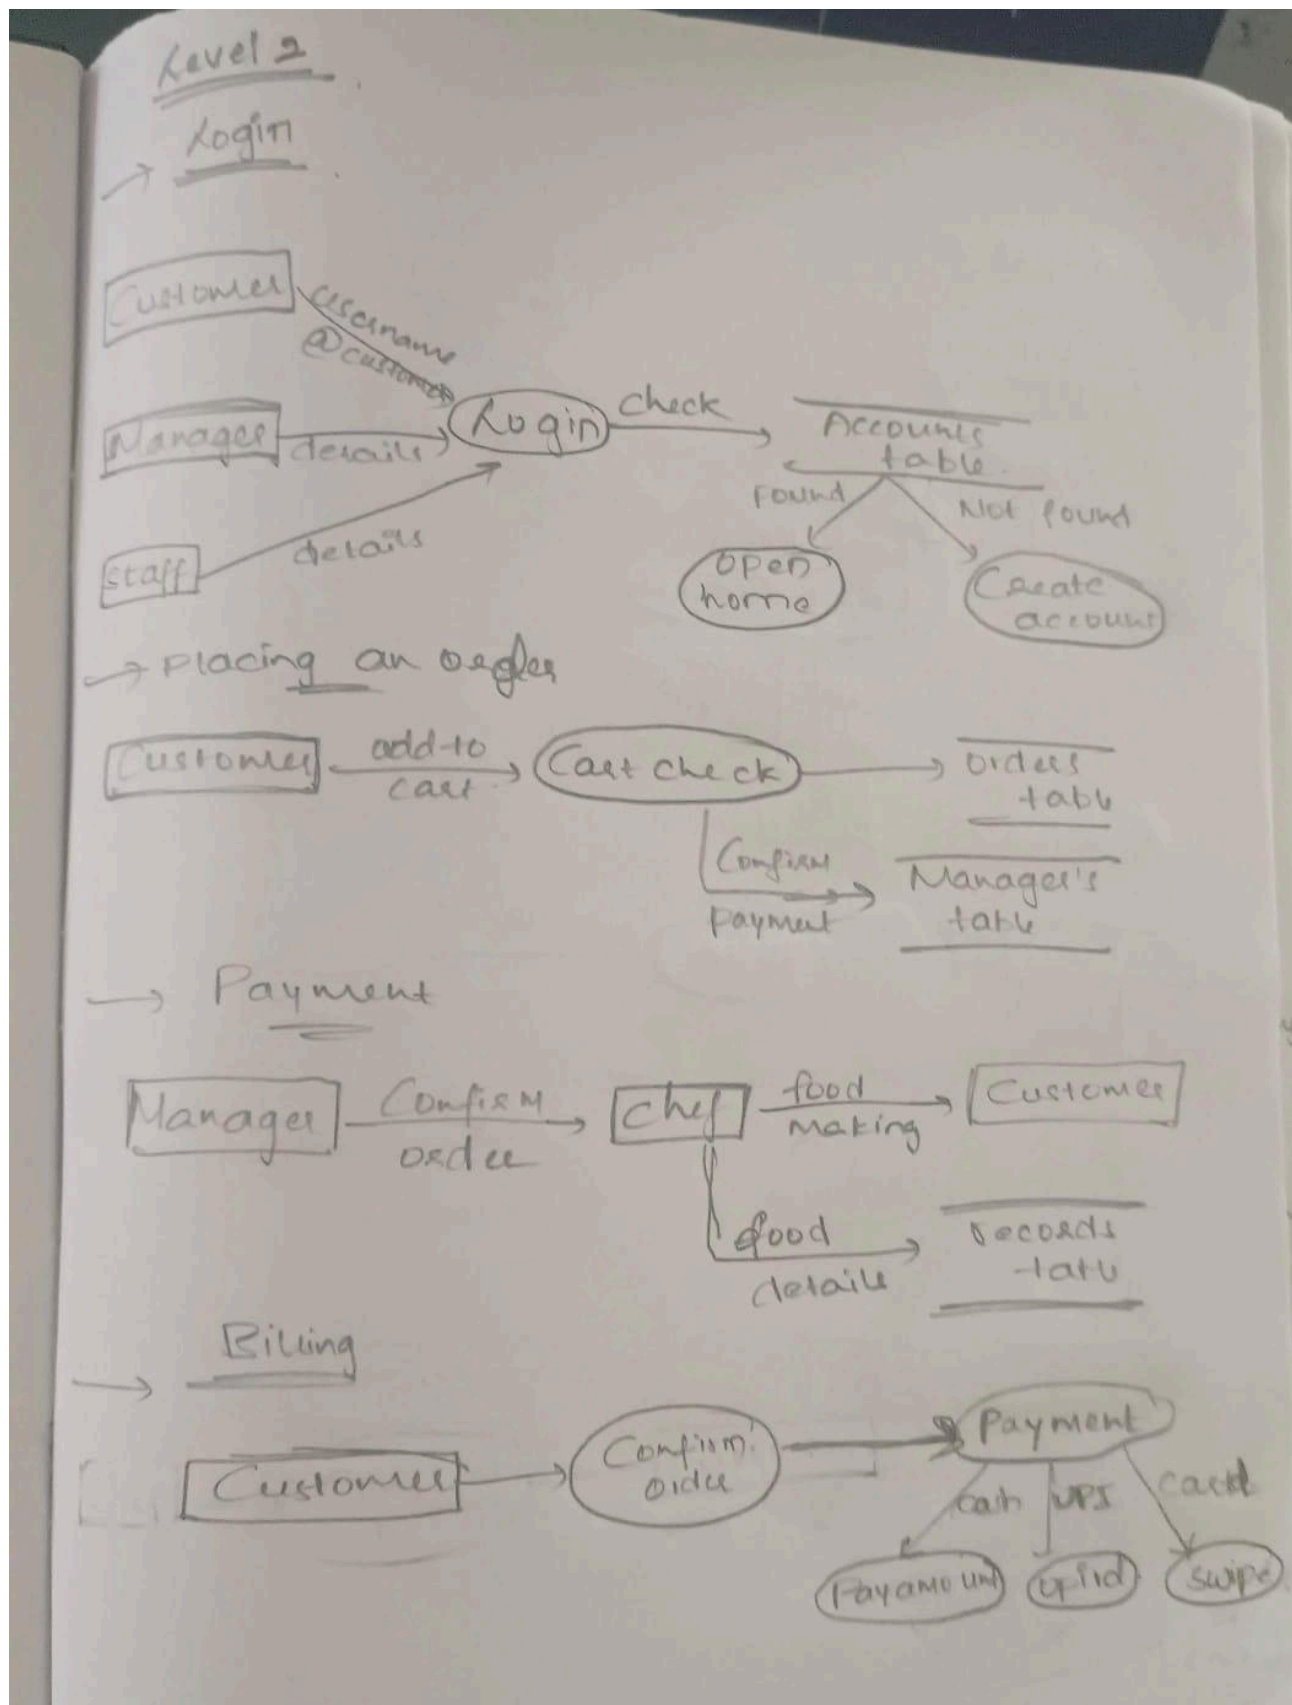 Level 2
Login
Customer
username
@customer
Manager
details
Login
check
Accounts
table
Found
Not found
staff
details
open
home
Create
account
Placing an order
Customer
add-to
cart
Cart check
orders
table
Confirm
payment
Manager's
table
Payment
Manager
Confirm
order
Chef
food
making
Customer
food
details
records
table
Billing
Customer
Confirm
order
Payment
cash
UPI
card
Pay amount
upi id
swipe